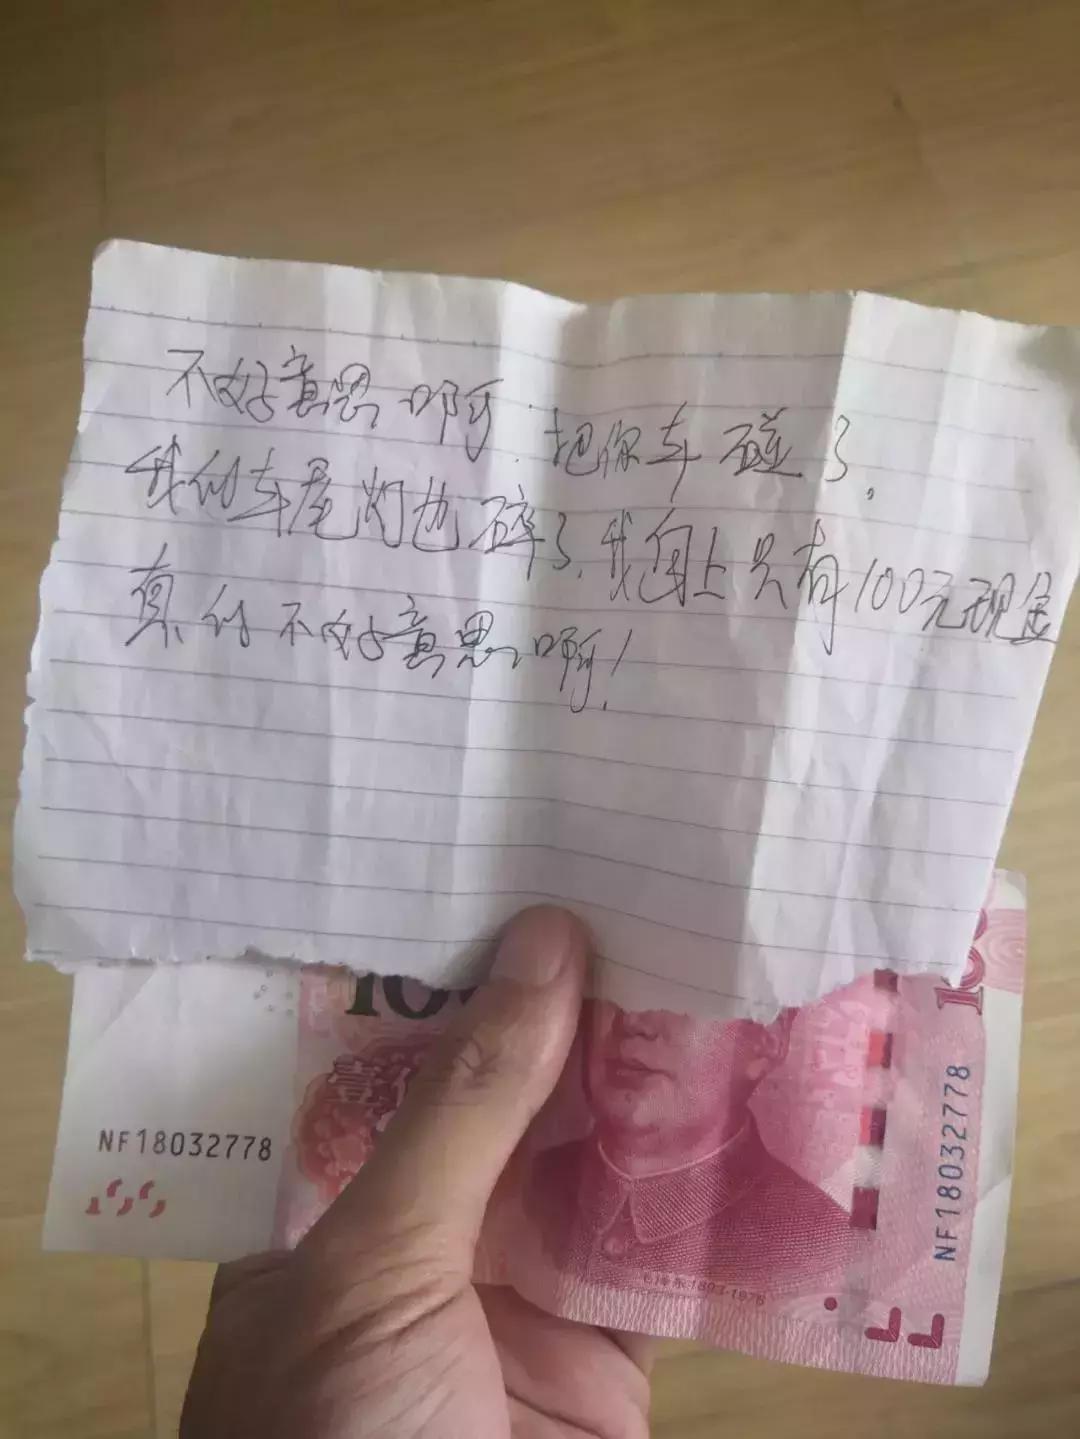 不好意思啊.把你车碰了,
我的车尾灯也碎了,我身上只有100元现金
真的不好意思啊!
100
NF18032778
NF18032778
毛泽东1893-1976